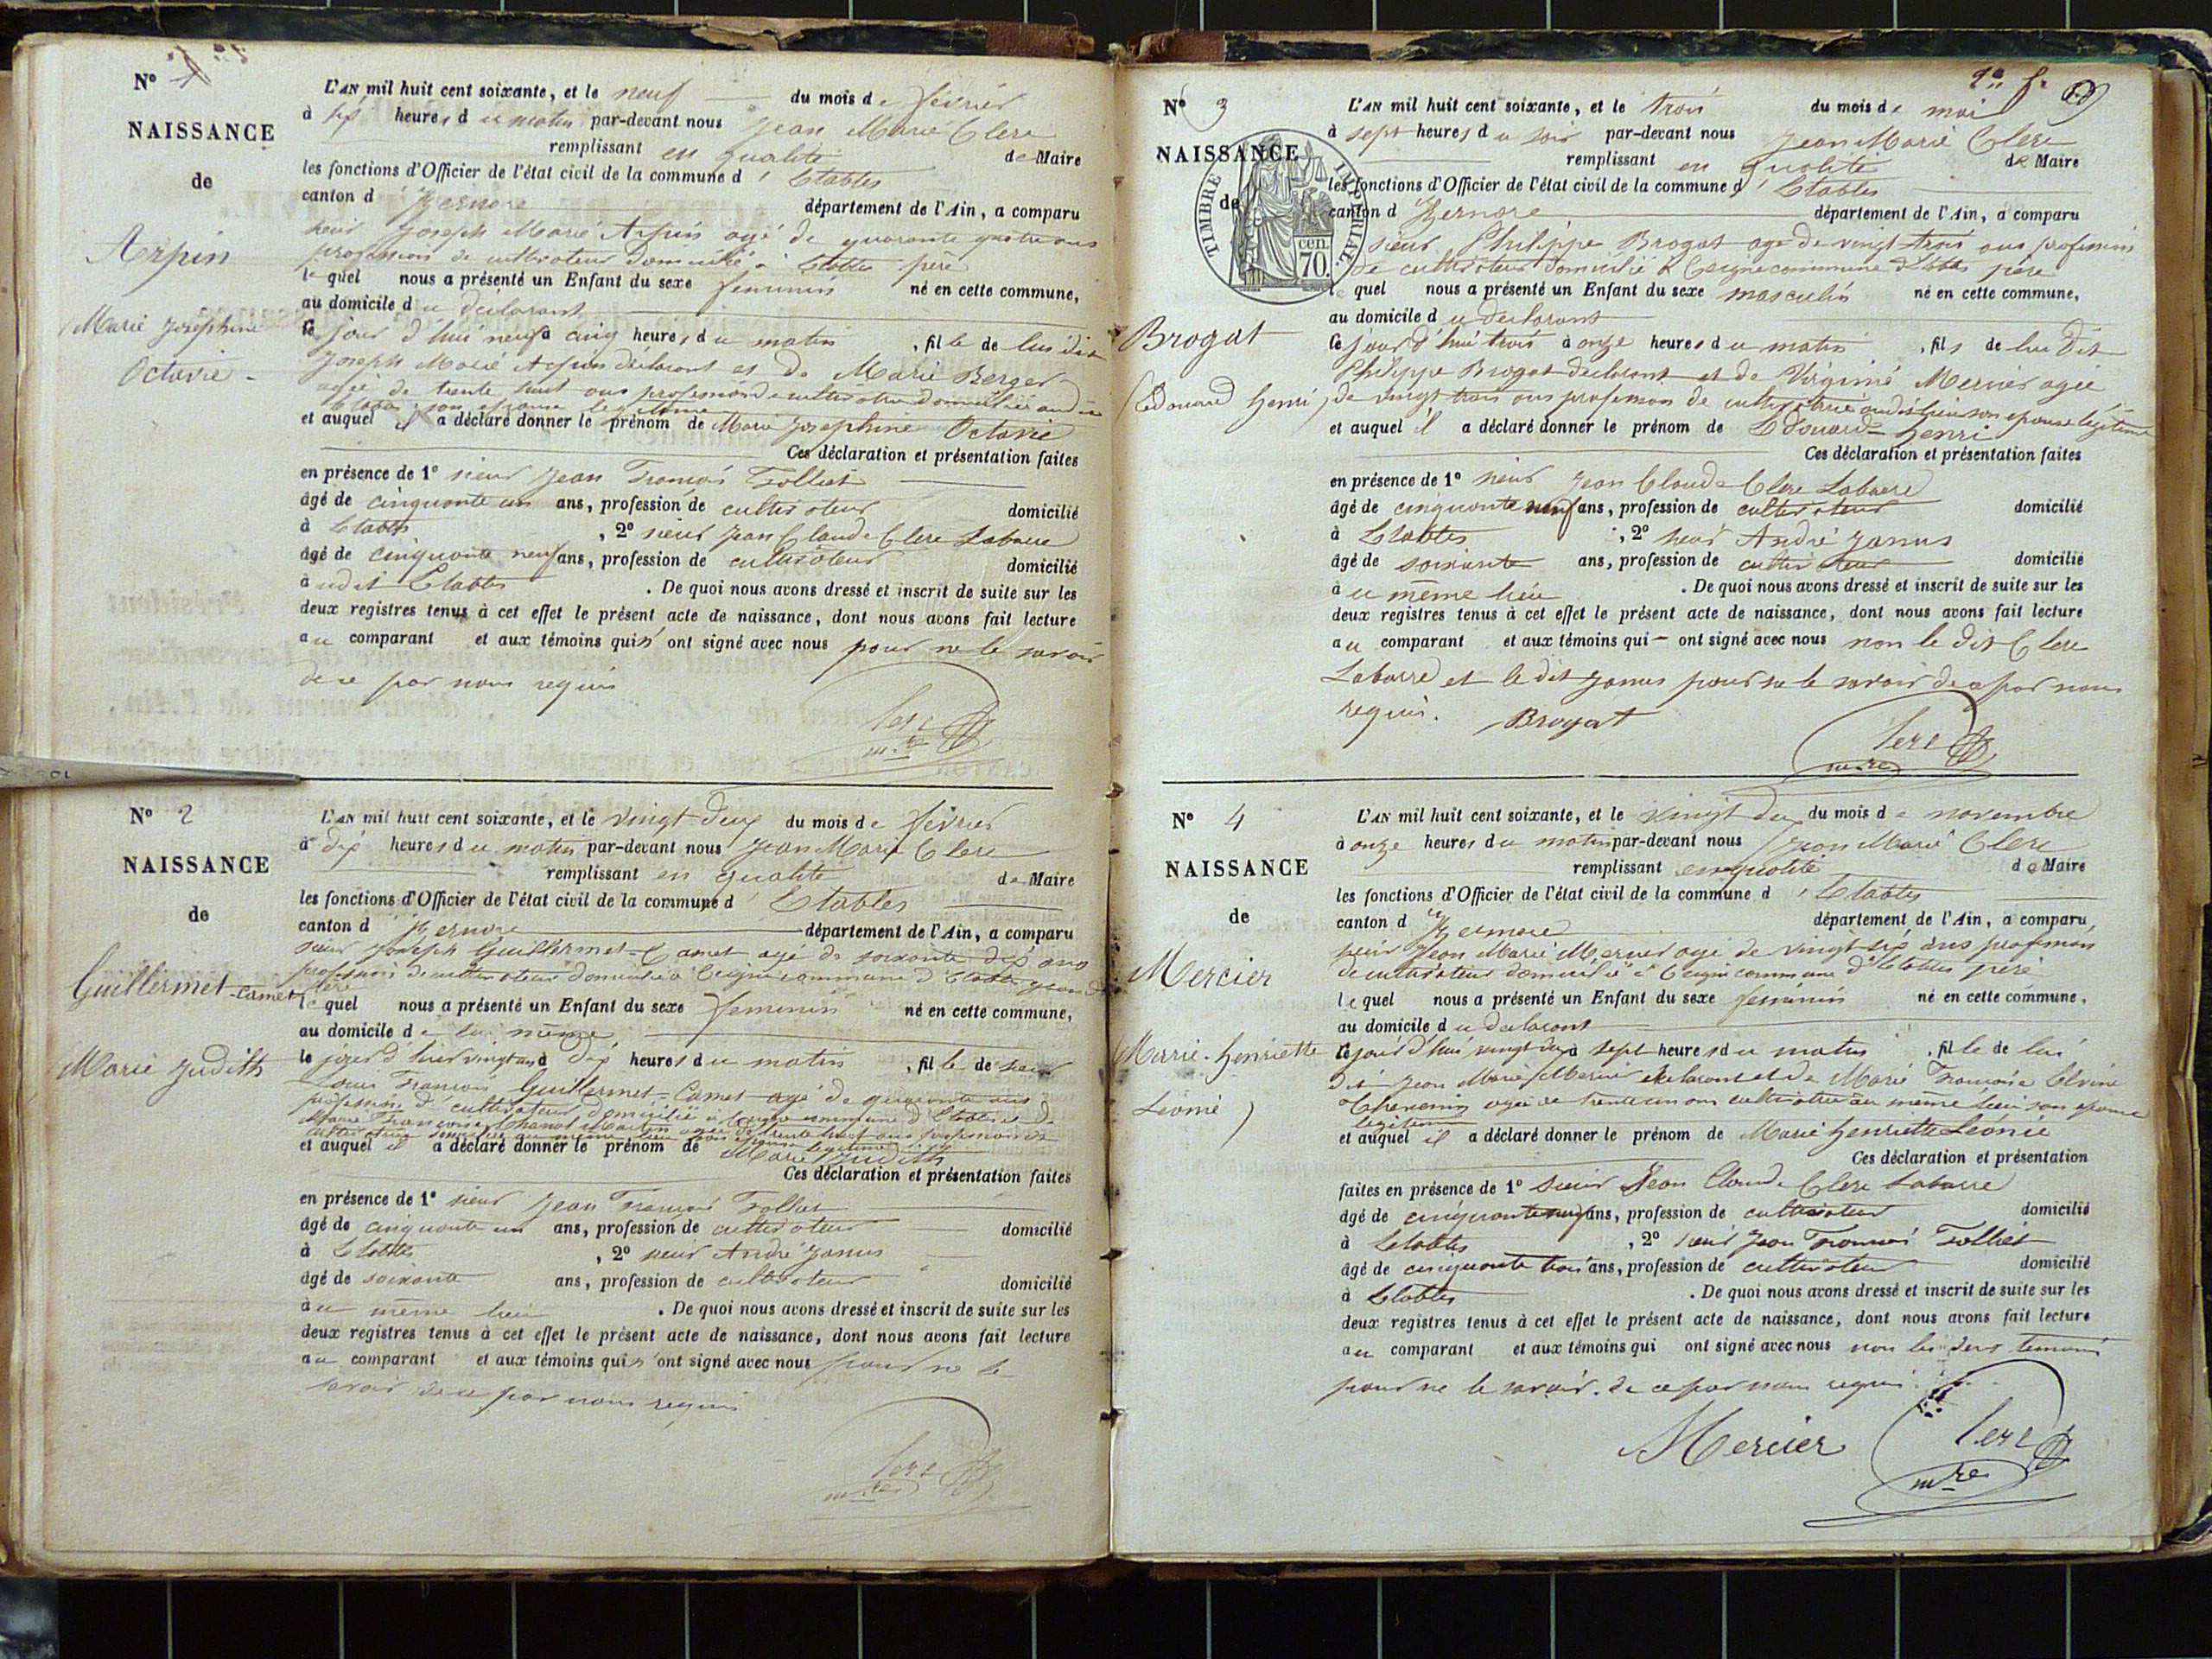 N° 1
NAISSANCE
de
Arpin
Marie Josephine
Octavie -
L'AN mil huit cent soixante, et le neuf du mois de février
à six heures du matin par-devant nous Jean Marie Clerc
remplissant en qualité de Maire
les fonctions d'Officier de l'état civil de la commune d' Etables
canton d' Izernore département de l'Ain, a comparu
sieur Joseph Marie Arpin agé de quarante quatre ans
profession de cultivateur domicilié à Etables père
lequel nous a présenté un Enfant du sexe feminin né en cette commune,
au domicile du déclarant
ce jour d'hui neuf à cinq heures du matin , fille de lui dit
Joseph Marie Arpin déclarant et de Marie Berger
agée de trente huit ans profession de cultivatrice domiciliée audit
Etables son epouse legitime
et auquel il a déclaré donner le prénom de Marie Josephine Octavie
Ces déclaration et présentation faites
en présence de 1° sieur Jean François Tolliet
âgé de cinquante un ans, profession de cultivateur domicilié
à Etables , 2° sieur Jean Claude Clerc Labarre
âgé de cinquante neuf ans, profession de cultivateur domicilié
à udit Etables . De quoi nous avons dressé et inscrit de suite sur les
deux registres tenus à cet effet le présent acte de naissance, dont nous avons fait lecture
au comparant et aux témoins qui n'ont signé avec nous pour ne le savoir
de ce par nous requis
Clerc
mre
N° 2
NAISSANCE
de
Guillermet-Camet
Marie Judith
L'AN mil huit cent soixante, et le vingt deux du mois de février
à dix heures du matin par-devant nous Jean Marie Clerc
remplissant en qualité de Maire
les fonctions d'Officier de l'état civil de la commune d' Etables
canton d' Izernore département de l'Ain, a comparu
sieur Joseph Guillermet-Camet agé de soixante dix ans
profession de cultivateur domicilié à Ceigne commune d'Etables grand
père
lequel nous a présenté un Enfant du sexe feminin né en cette commune,
au domicile de lui même
le jour d'hier vingt un à dix heures du matin , fille de sieur
Louis François Guillermet-Camet agé de quarante ans
profession d' cultivateur domicilié à Ceigne commune d'Etables et de
Marie Françoise agée de trente huit ans profession de
cultivatrice domiciliée au même lieu son epouse legitime
et auquel il a déclaré donner le prénom de Marie Judith
Ces déclaration et présentation faites
en présence de 1° sieur Jean François Tolliet
âgé de cinquante un ans, profession de cultivateur domicilié
à Etables , 2° sieur André Janus
âgé de soixante ans, profession de cultivateur domicilié
à u même lieu . De quoi nous avons dressé et inscrit de suite sur les
deux registres tenus à cet effet le présent acte de naissance, dont nous avons fait lecture
au comparant et aux témoins qui n'ont signé avec nous pour ne le
savoir de ce par nous requis
Clerc
mre
N° 3
NAISSANCE
de
TIMBRE IMPERIAL
cen.
70.
Brogat
(Edouard henri)
L'AN mil huit cent soixante, et le trois du mois de mai
à sept heures du soir par-devant nous Jean Marie Clerc
remplissant en qualité de Maire
les fonctions d'Officier de l'état civil de la commune d' Etables
canton d Izernore département de l'Ain, a comparu
sieur Philippe Brogat age de vingt trois ans profession
de cultivateur domicilié à Ceigne commune d'Etables père
lequel nous a présenté un Enfant du sexe masculin né en cette commune,
au domicile du declarant
Ce jour d'hui trois à onze heures du matin , fils de lui dit
Philippe Brogat declarant et de Virginie Mercier agée
de vingt trois ans profession de cultivatrice audit lieu son epouse legitime
et auquel il a déclaré donner le prénom de Edouard-henri
Ces déclaration et présentation faites
en présence de 1° sieur Jean Claude Clerc Labarre
âgé de cinquante neuf ans, profession de cultivateur domicilié
à Etables , 2° sieur André Janus
âgé de soixante ans, profession de cultivateur domicilié
à u même lieu . De quoi nous avons dressé et inscrit de suite sur les
deux registres tenus à cet effet le présent acte de naissance, dont nous avons fait lecture
au comparant et aux témoins qui - ont signé avec nous non le dit Clerc
Labarre et le dit Janus pour ne le savoir de ce par nous
requis. Brogat
Clerc
mre
N° 4
NAISSANCE
de
Mercier
(Marie-henriette
Léonie)
L'AN mil huit cent soixante, et le vingt deux du mois de novembre
à onze heures du matin par-devant nous Jean Marie Clerc
remplissant en qualité de Maire
les fonctions d'Officier de l'état civil de la commune d' Etables
canton d' Izernore département de l'Ain, a comparu,
sieur Jean Marie Mercier agé de vingt six ans profession
de cultivateur domicilié à Ceigne commune d'Etables père
lequel nous a présenté un Enfant du sexe féminin né en cette commune,
au domicile du declarant
Ce jour d'hui vingt deux à sept heures du matin , fille de lui
dit Jean Marie Mercier declarant et de Marie Françoise
agée de trente un ans cultivatrice au même lieu son epouse
legitime
et auquel il a déclaré donner le prénom de Marie henriette Leonie
Ces déclaration et présentation
faites en présence de 1° Sieur Jean Claude Clerc Labarre
âgé de cinquante neuf ans, profession de cultivateur domicilié
à Etables , 2° sieur Jean François Tolliet
âgé de cinquante trois ans, profession de cultivateur domicilié
à Etables . De quoi nous avons dressé et inscrit de suite sur les
deux registres tenus à cet effet le présent acte de naissance, dont nous avons fait lecture
au comparant et aux témoins qui ont signé avec nous non les deux temoins
pour ne le savoir. de ce par nous requis.
Mercier
Clerc
mre